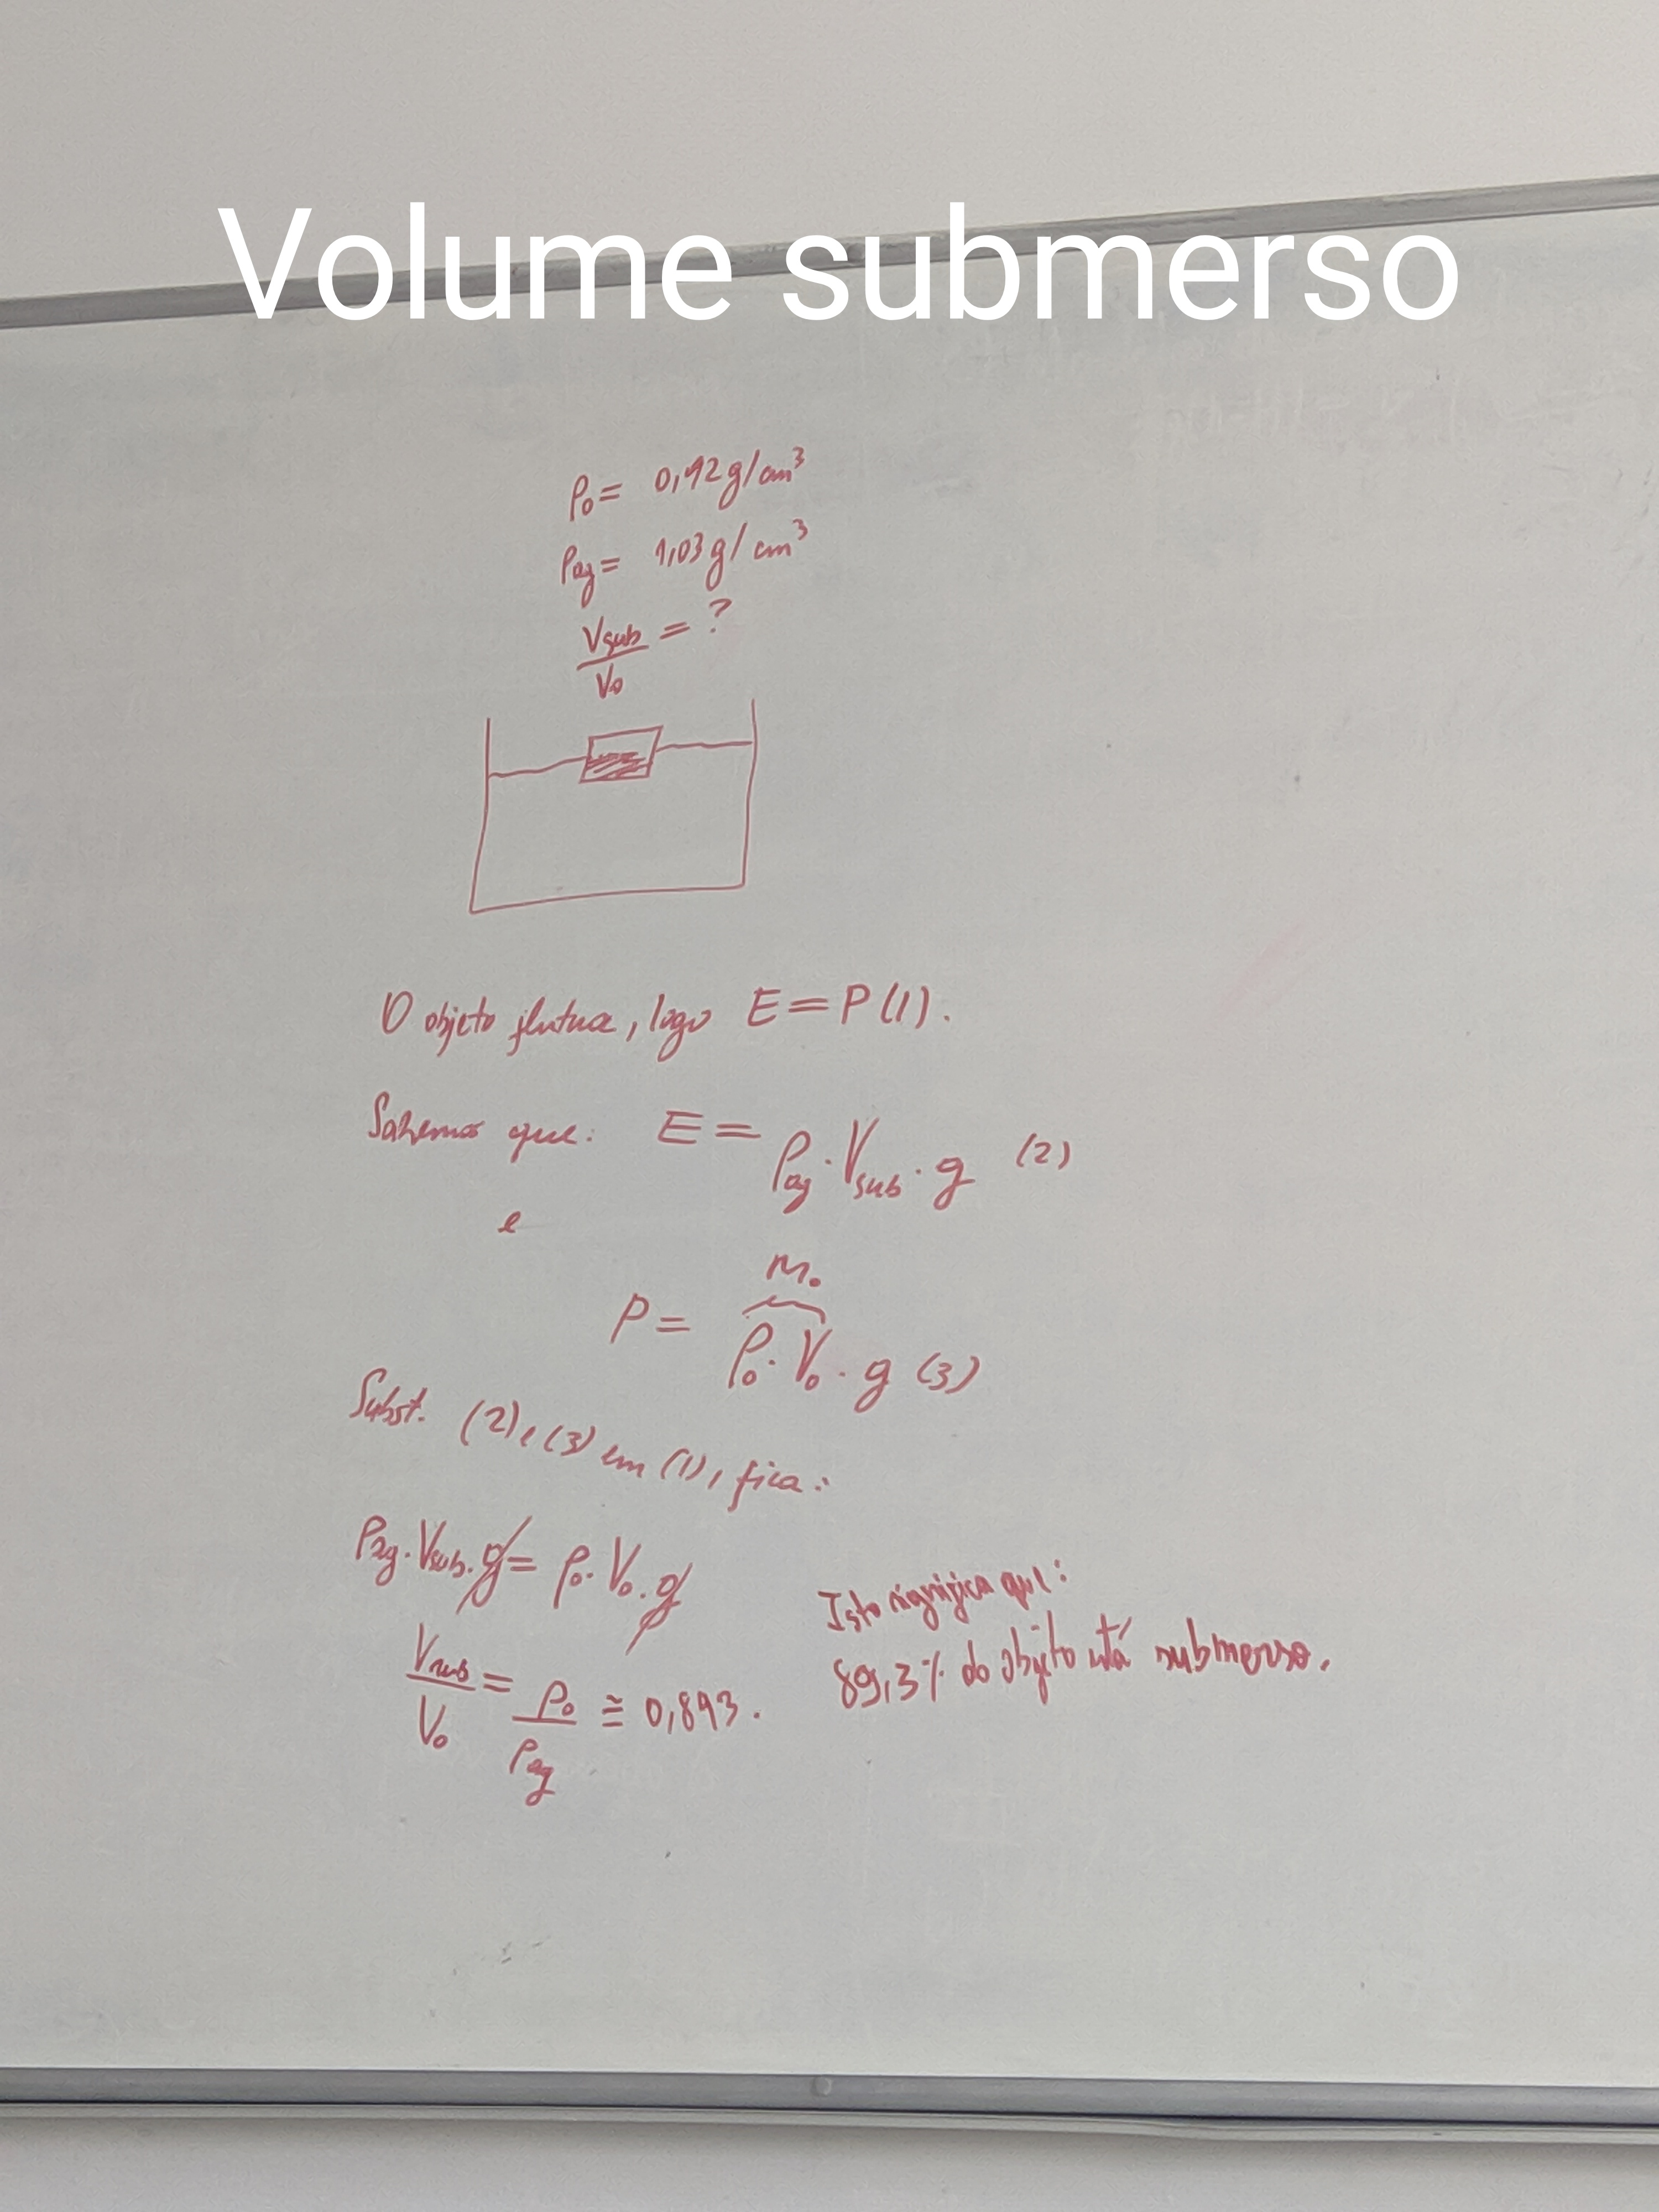 Volume submerso
ρ₀ = 0,92 g/cm³
ρag = 1,03 g/cm³
Vsub/V₀ = ?
O objeto flutua, logo E = P (1).
Sabemos que: E = ρag · Vsub · g (2)
e
m₀
P = ρ₀ · V₀ · g (3)
Subst. (2) e (3) em (1), fica:
ρag · Vsub · g = ρ₀ · V₀ · g
Vsub/V₀ = ρ₀/ρag ≅ 0,893.
Isto significa que:
89,3% do objeto está submerso.